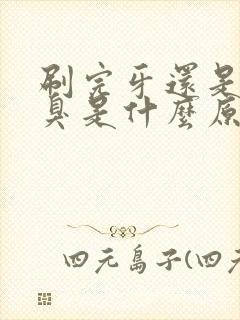 刷完牙還是
臭是什麼原
四元島子(四元